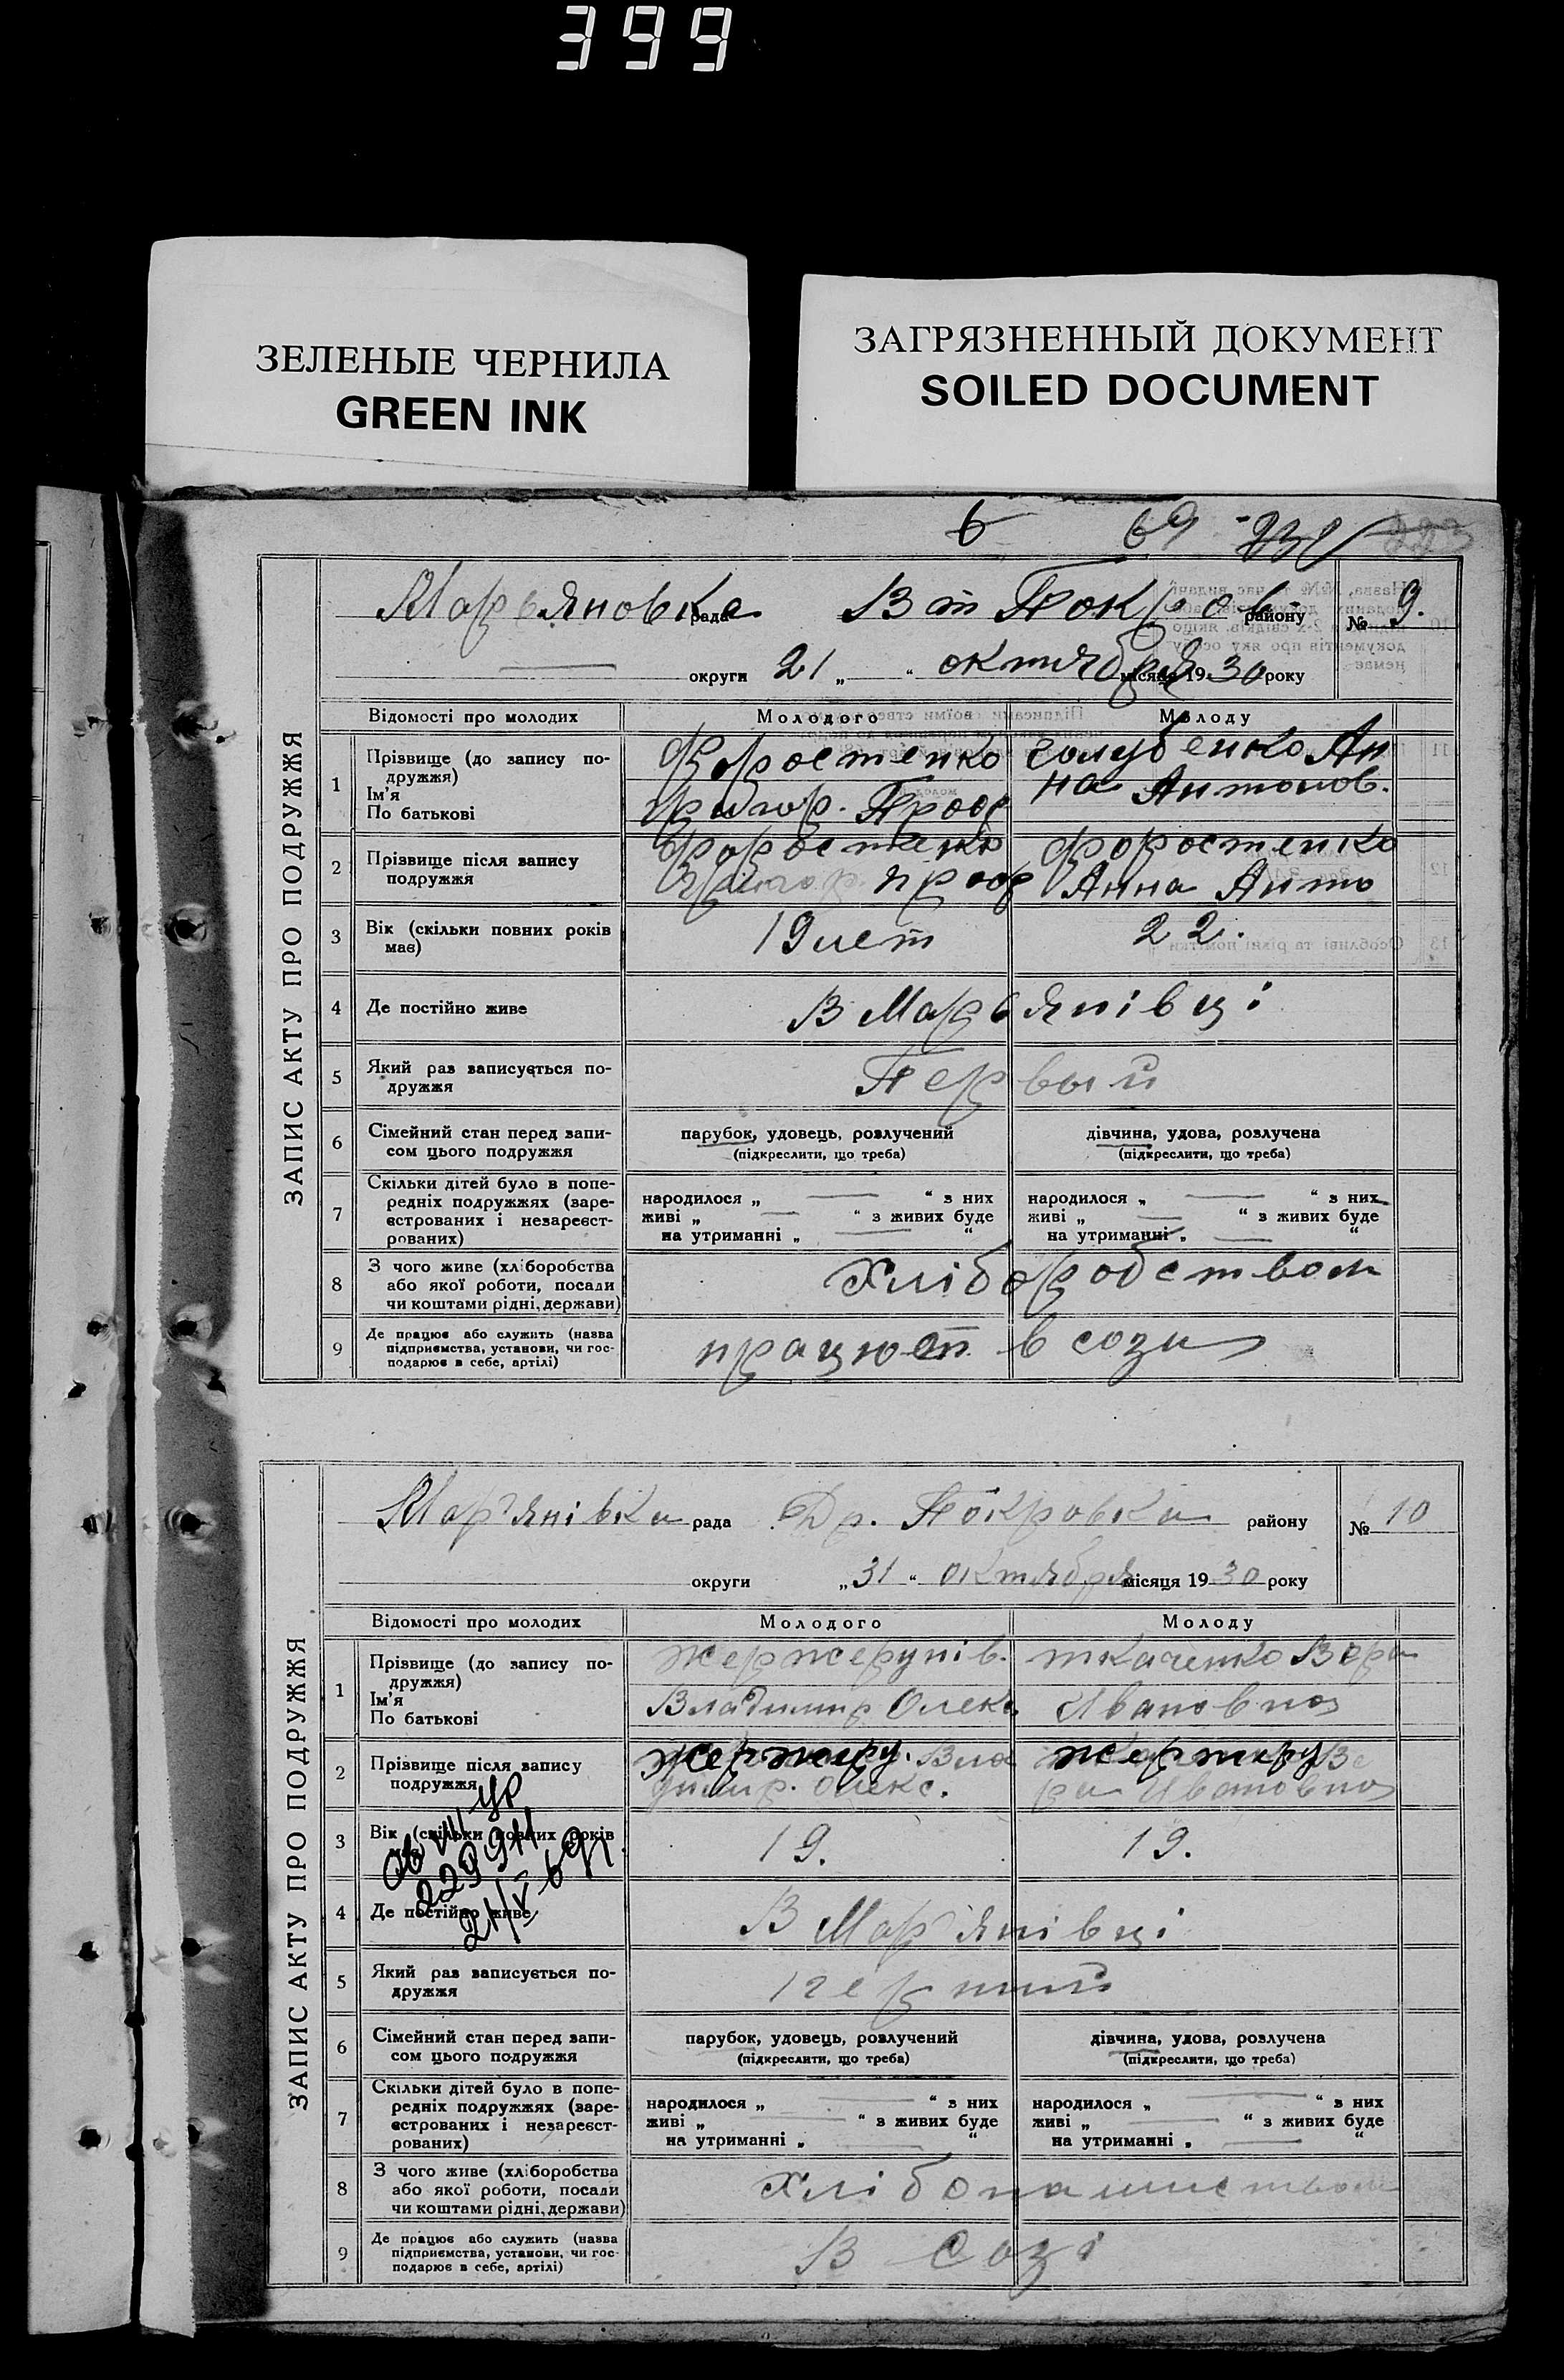 399
ЗЕЛЕНЫЕ ЧЕРНИЛА
GREEN INK
ЗАГРЯЗНЕННЫЙ ДОКУМЕНТ
SOILED DOCUMENT
6 69
ЗАПИС АКТУ ПРО ПОДРУЖЖЯ
Марьяновка рада Вт Покров району № 9.
округи 21 „ “ октября місяця 1930 року
Відомості про молодих Молодого Молоду
1 Прізвище (до запису по-
дружжя)
Ім'я
По батькові
Форостенко
Григор. Проф
Голубенко Ан
на Антонов.
2 Прізвище після запису
подружжя
Форостенко
Григор. Проф
Форостенко
Анна Анто
3 Вік (скільки повних років
має)
19 лет 22.
4 Де постійно живе В Марьянівці
5 Який раз записується по-
дружжя
Первый
6 Сімейний стан перед запи-
сом цього подружжя
парубок, удовець, розлучений
(підкреслити, що треба)
дівчина, удова, розлучена
(підкреслити, що треба)
7 Скільки дітей було в попе-
редніх подружжях (заре-
єстрованих і незареєст-
рованих)
народилося „ “ з них
живі „ “ з живих буде
на утриманні „ “
народилося „ “ з них
живі „ “ з живих буде
на утриманні „ “
8 З чого живе (хліборобства
або якої роботи, посади
чи коштами рідні, держави)
Хліборобством
9 Де працює або служить (назва
підприємства, установи, чи гос-
подарює в себе, артілі)
працюєт в сози
ЗАПИС АКТУ ПРО ПОДРУЖЖЯ
Мар'янівка рада Вт. Покровка району № 10
округи „ 31 “ октября місяця 1930 року
Відомості про молодих Молодого Молоду
1 Прізвище (до запису по-
дружжя)
Ім'я
По батькові
Жержерунів.
Владимир Олекс.
Ткаченко Вера
Ивановна
2 Прізвище після запису
подружжя
Вла
димир. Олекс.
Ве
ра Ивановна
3 Вік (скільки повних років
має)
19. 19.
4 Де постійно живе В Мар'янівці
5 Який раз записується по-
дружжя
Перший
6 Сімейний стан перед запи-
сом цього подружжя
парубок, удовець, розлучений
(підкреслити, що треба)
дівчина, удова, розлучена
(підкреслити, що треба)
7 Скільки дітей було в попе-
редніх подружжях (заре-
єстрованих і незареєст-
рованих)
народилося „ “ з них
живі „ “ з живих буде
на утриманні „ “
народилося „ “ з них
живі „ “ з живих буде
на утриманні „ “
8 З чого живе (хліборобства
або якої роботи, посади
чи коштами рідні, держави)
Хлібопашеством
9 Де працює або служить (назва
підприємства, установи, чи гос-
подарює в себе, артілі)
В Созі